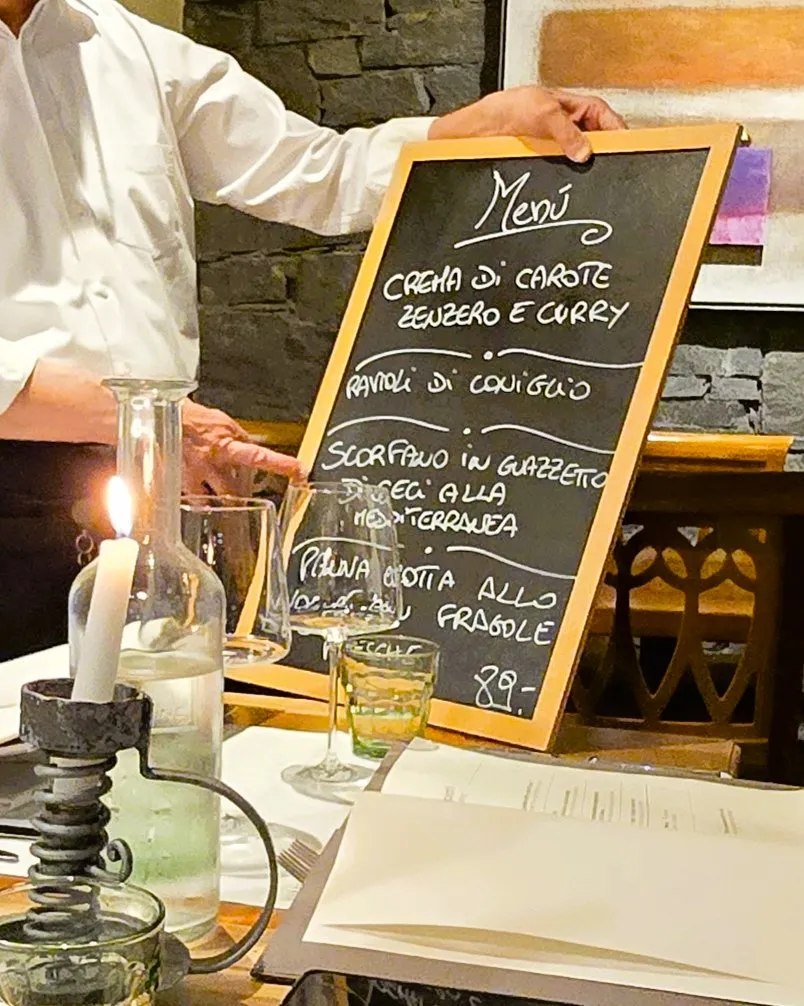 Menú
CREMA Di CAROTE
ZENZERO E CURRY
RAVIOLi Di CONiGLiO
SCORFANO iN GUAZZETTO
Di CECi ALLA
MEDiTERRANEA
PANNA COTTA ALLO
FRAGOLE
89.-